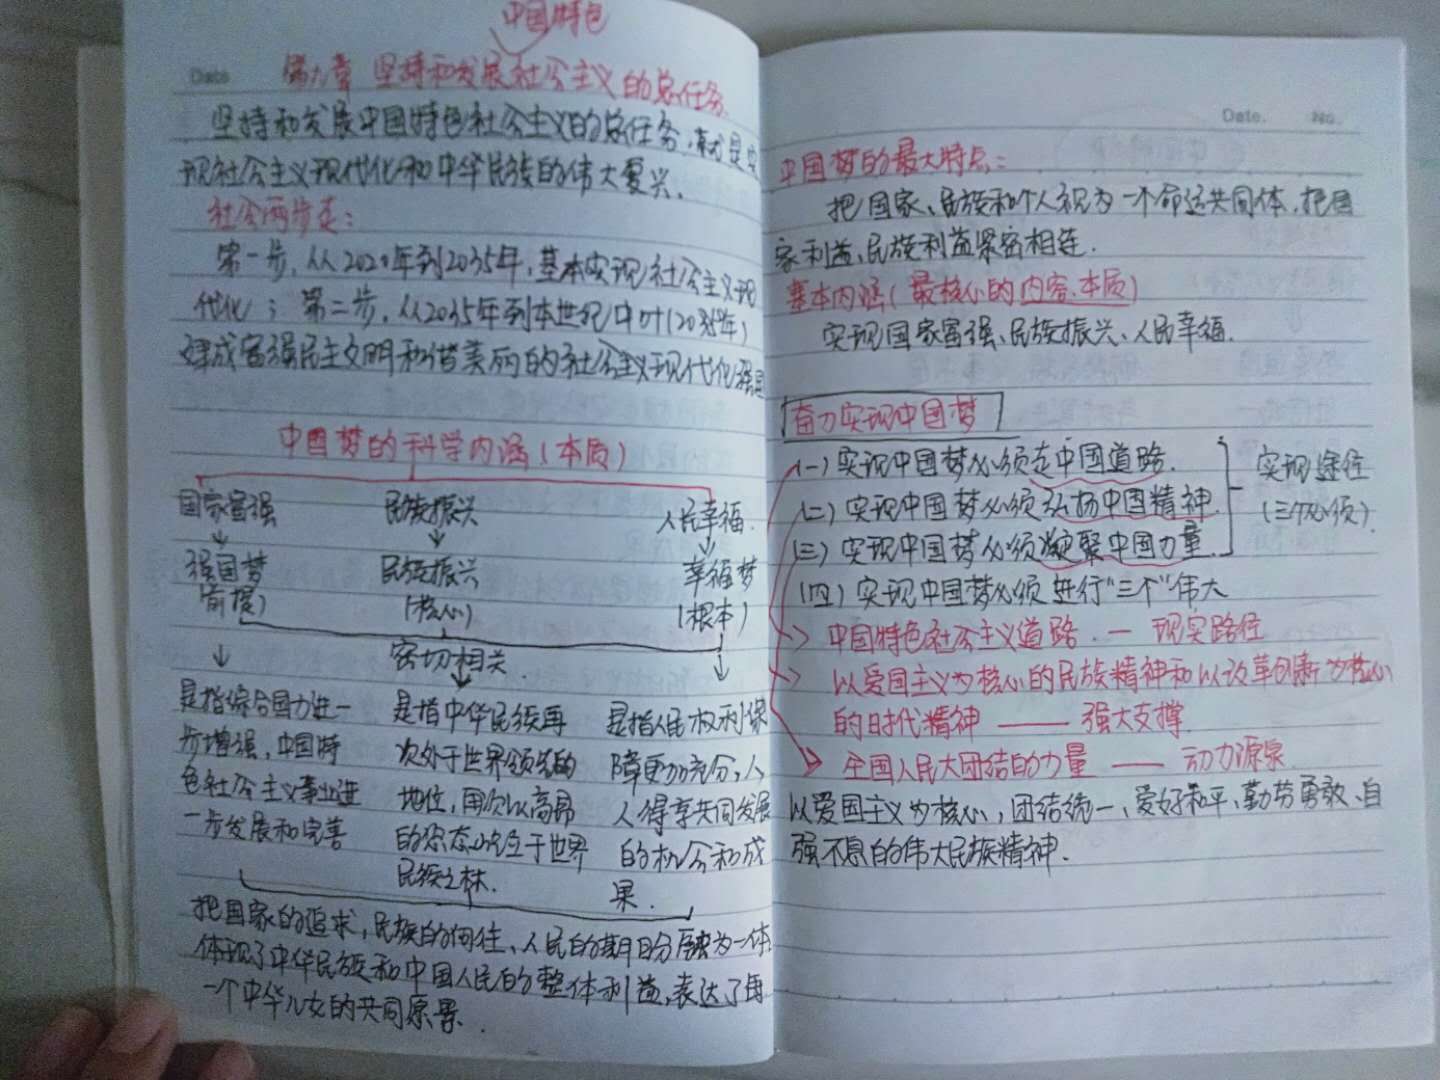 中国特色
Date
第九章 坚持和发展社会主义的总任务.
坚持和发展中国特色社会主义的总任务,就是实
现社会主义现代化和中华民族的伟大复兴.
社会两步走:
第一步,从2020年到2035年,基本实现社会主义现
代化;第二步,从2035年到本世纪中叶(
建成富强民主文明和谐美丽的社会主义现代化强国
中国梦的科学内涵(本质)
国家富强 民族振兴 人民幸福.
强国梦 民族振兴 幸福梦
(前提) (核心) (根本)
密切相关.
是指综合国力进一 是指中华民族再 是指人民权利保
步增强,中国特 次处于世界领先的 障更加充分,人
色社会主义事业进 地位,用次以高昂 人得享共同发展
一步发展和完善 的姿态屹立于世界 的机会和成
民族之林. 果.
把国家的追求,民族的向往、人民的期盼融为一体
体现了中华民族和中国人民的整体利益,表达了每
一个中华儿女的共同愿景.
Date. No.
中国梦的最大特点:
把国家、民族和个人视为一个命运共同体,把国
家利益、民族利益紧密相连.
基本内涵(最核心的内容、本质)
实现国家富强、民族振兴、人民幸福.
奋力实现中国梦
(一)实现中国梦必须走中国道路.
(二)实现中国梦必须弘扬中国精神.
(三)实现中国梦必须凝聚中国力量.
实现途径
(三个必须).
(四)实现中国梦必须进行“三个”伟大
中国特色社会主义道路.— 现实路径
以爱国主义为核心的民族精神和以改革创新为核心
的时代精神 —— 强大支撑.
全国人民大团结的力量 —— 动力源泉.
以爱国主义为核心,团结统一、爱好和平、勤劳勇敢、自
强不息的伟大民族精神.